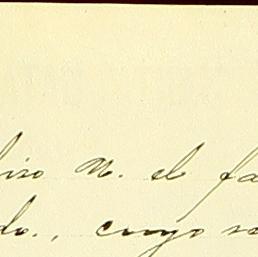 hizo N. el fa
do., cuyo se